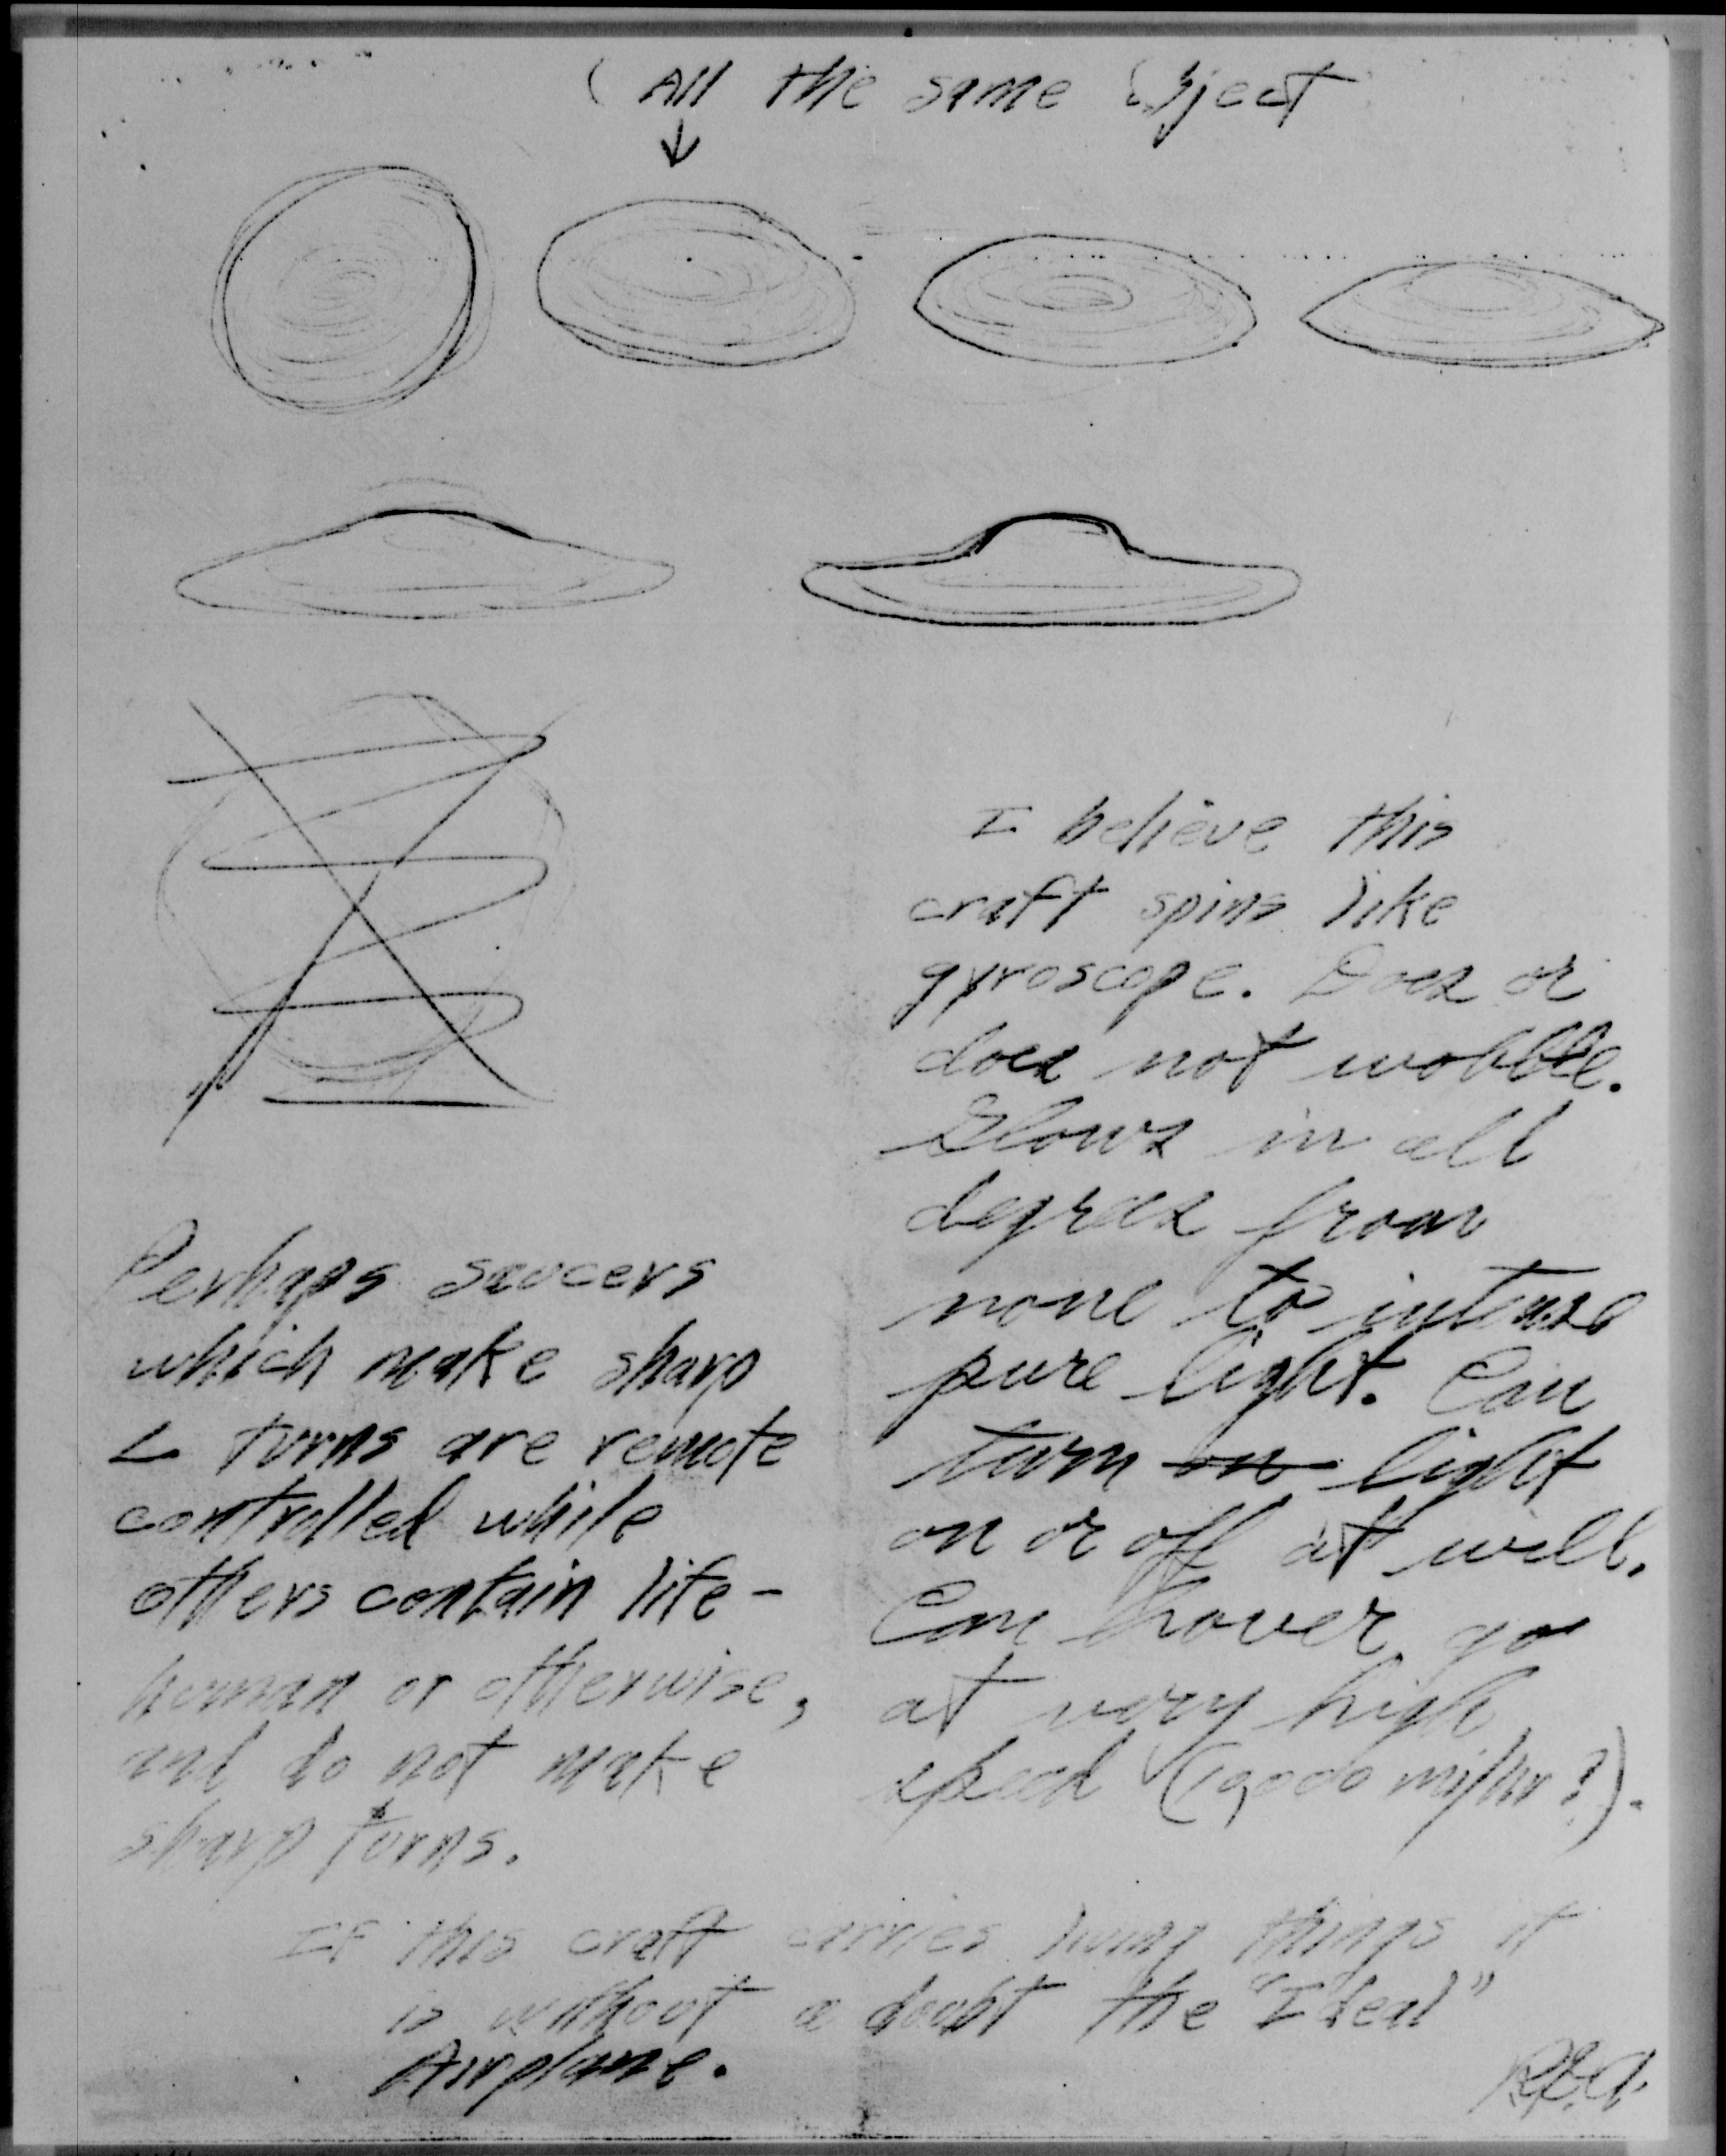 ( All the same Object
I believe this
craft spins like
gyroscope. Does or
does not wobble.
Glows in all
degrees from
none to intense
pure light. Can
turn on light
on or off at will.
Can hover, go
at very high
speed
Perhaps saucers
which make sharp
∠ turns are remote
controlled while
others contain life -
human or otherwise,
and do not make
sharp turns.
If this craft carries living things it
is without a doubt the "Ideal"
Airplane.